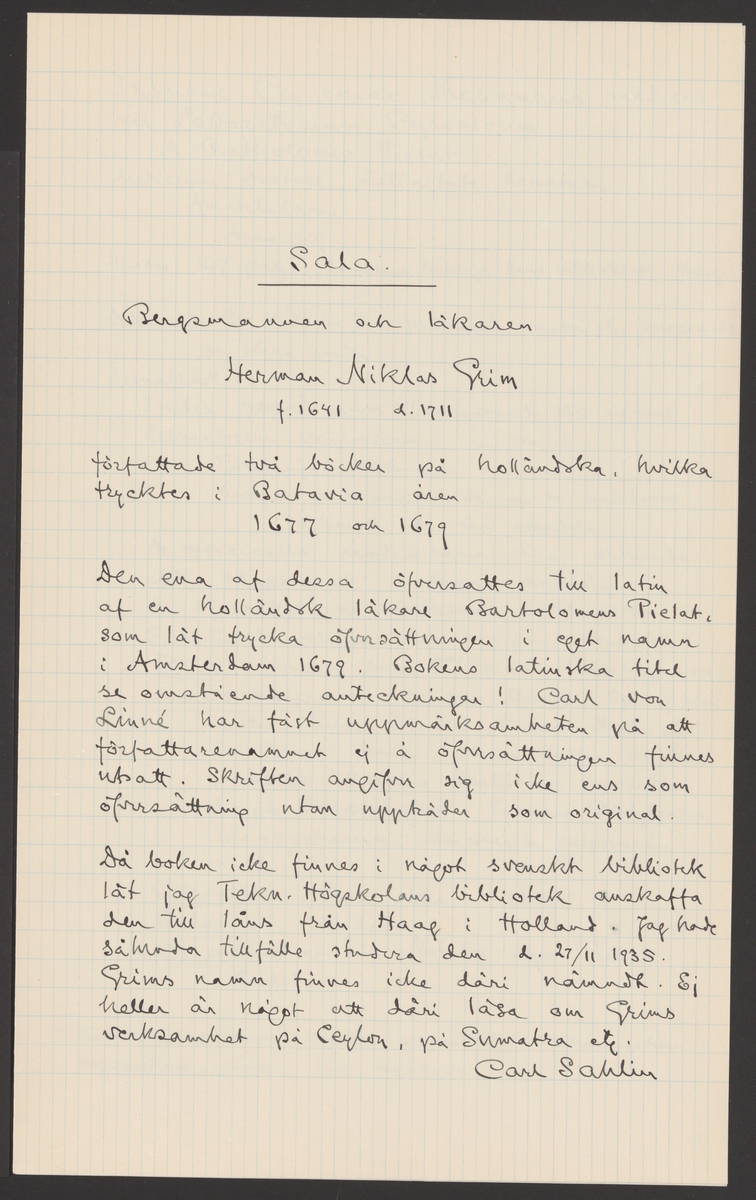 Sala.
Bergsmannen och läkaren
Herman Niklas Grim
f. 1641 d. 1711
författade två böcker på holländska, hvilka
trycktes i Batavia åren
1677 och 1679
Den ena af dessa öfversattes till latin
af en holländsk läkare Bartolomeus Pielat,
som lät trycka öfversättningen i eget namn
i Amsterdam 1679. Bokens latinska titel
se omstående anteckningar! Carl von
Linné har fäst uppmärksamheten på att
författarenamnet ej å öfversättningen finnes
utsatt. Skriften angifver sig icke ens som
öfversättning utan uppträder som original.
Då boken icke finnes i något svenskt bibliotek
lät jag Tekn. Högskolans bibliotek anskaffa
den till låns från Haag i Holland. Jag hade
sålunda tillfälle studera den d. 27/11 1935.
Grims namn finnes icke däri nämndt. Ej
heller är något att däri läsa om Grims
verksamhet på Ceylon, på Sumatra etc.
Carl Sahlin